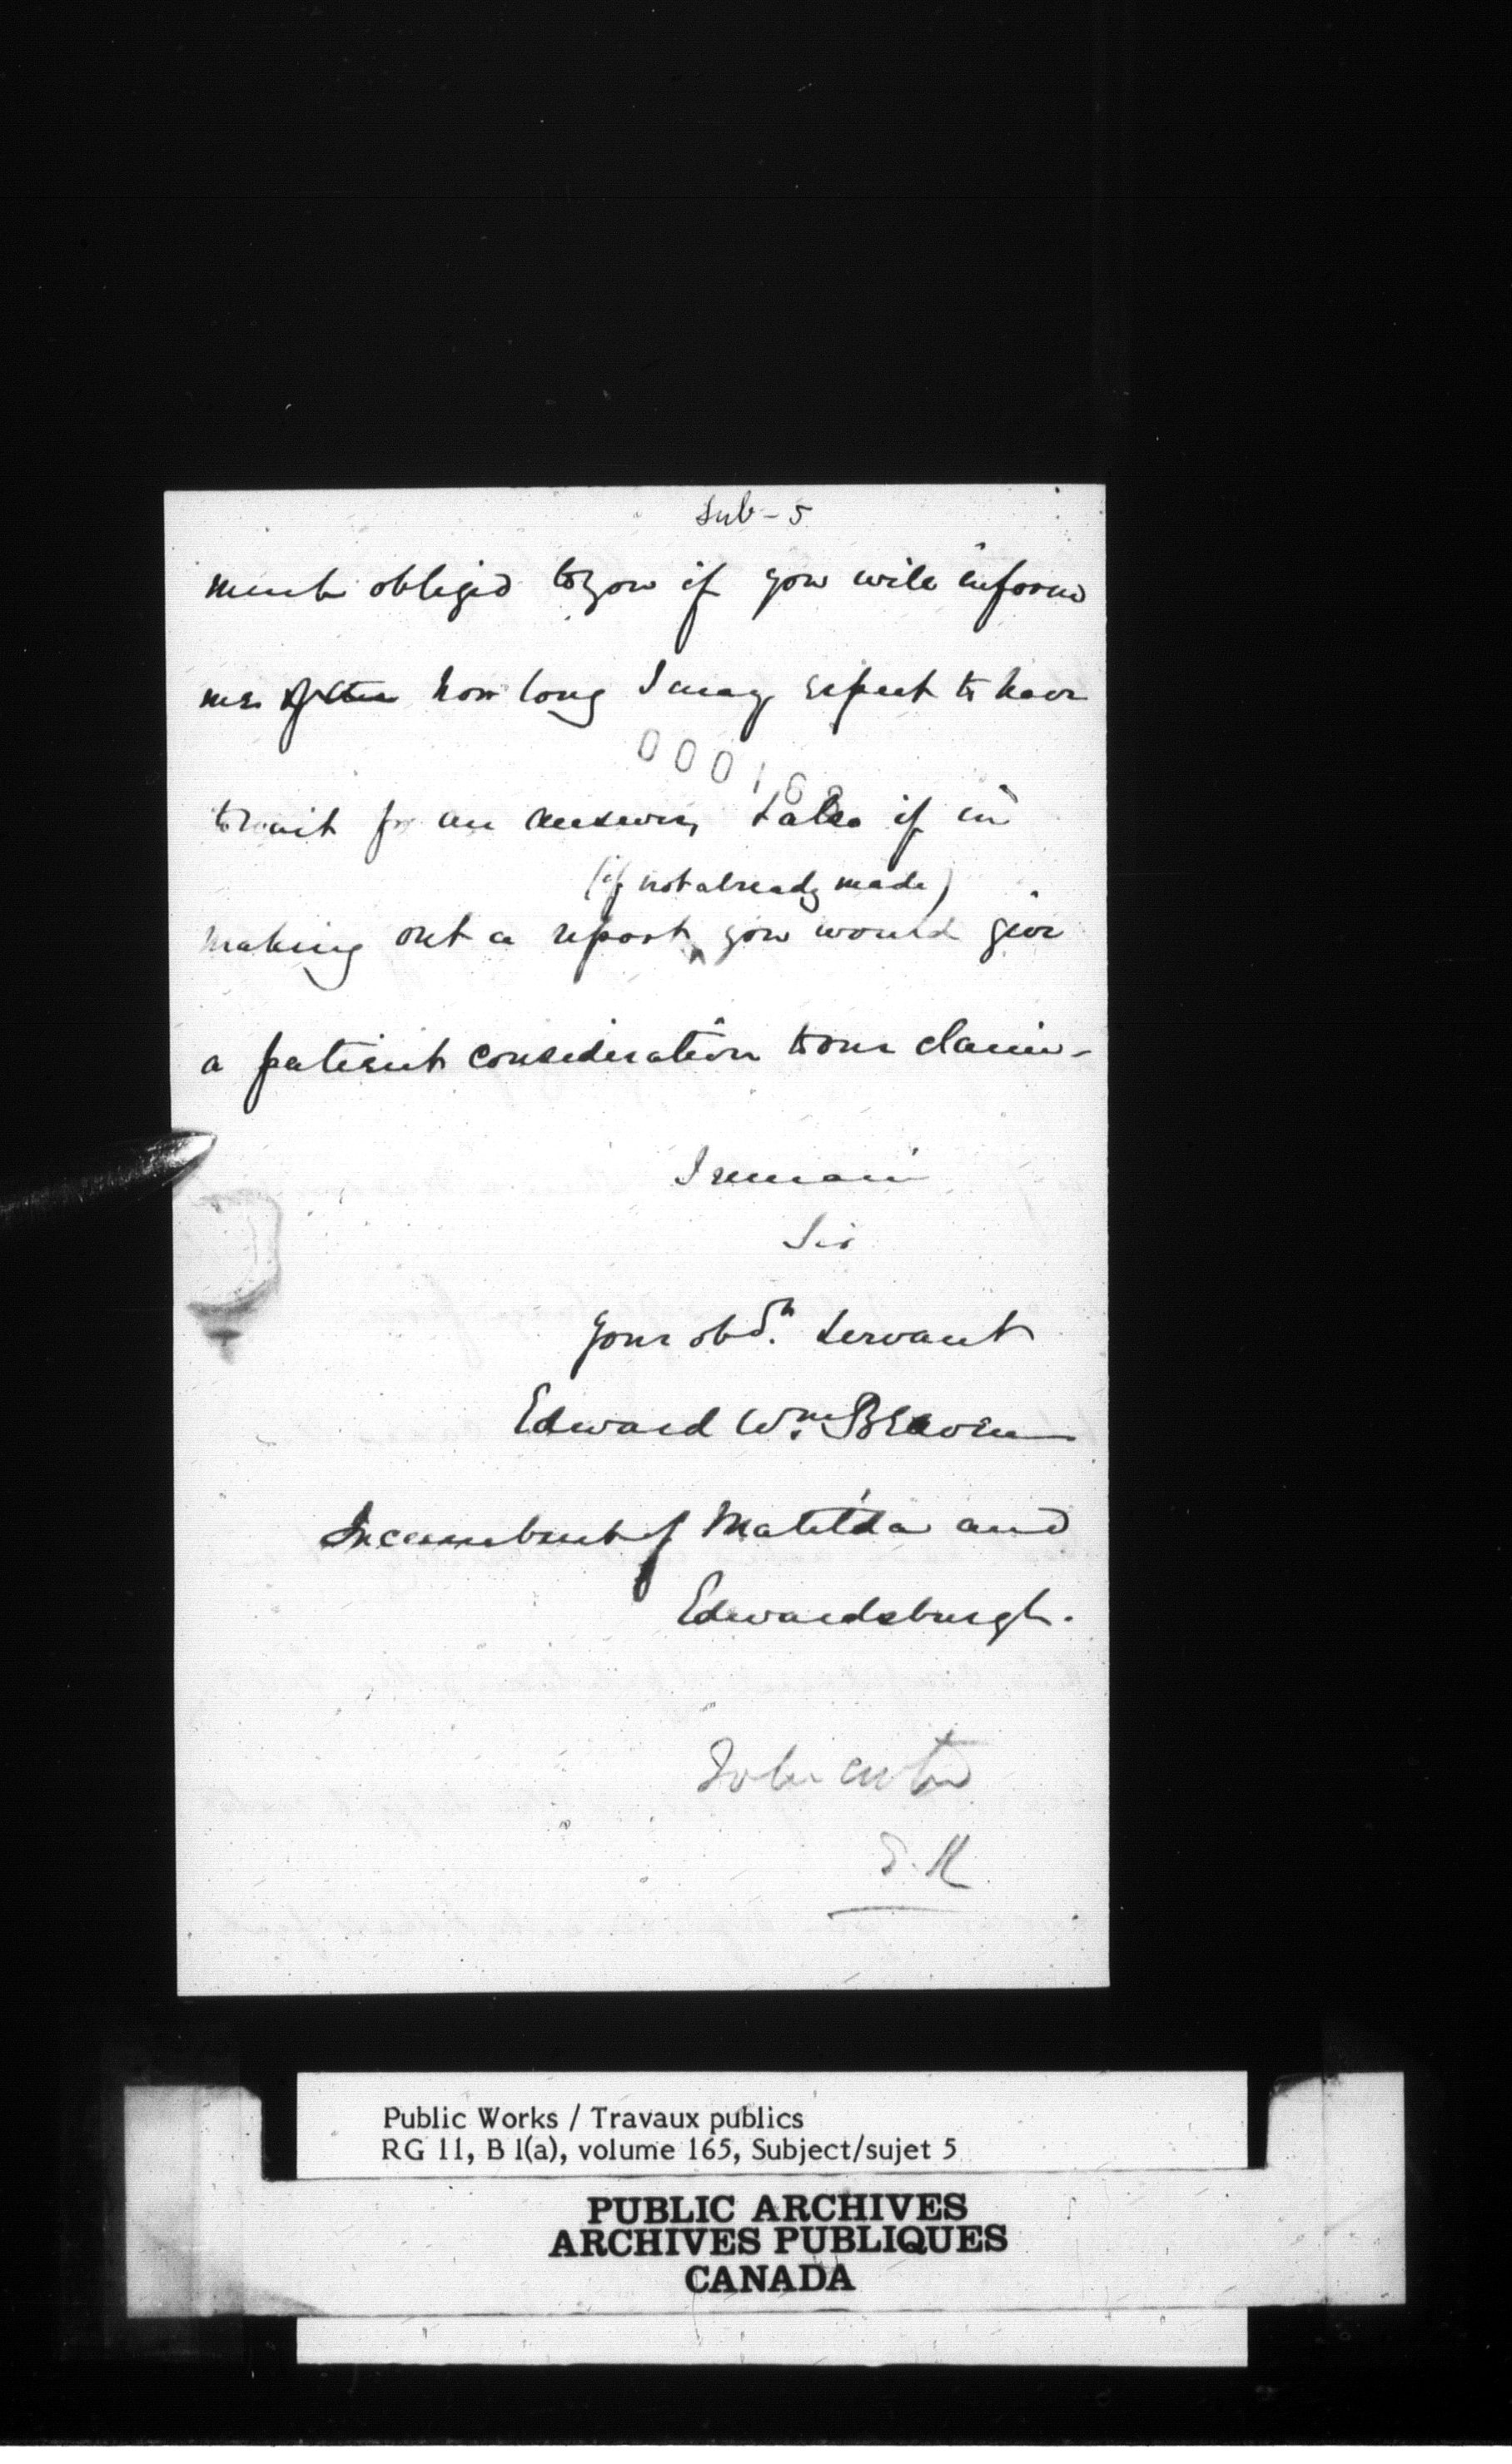 Sub-5
much obliged to you if you will inform
me how long I may expect to have
0001
to wait for an answer, & also if in
(if not already made)
making out a report you would give
a patient consideration to our claim-
I remain
Sir
Your obdt. Servant
Edward Wm. Beaven
Incumbent of Matilda and
Edwardsburgh.
Public Works / Travaux publics
RG 11, B 1(a), volume 165, Subject/sujet 5
PUBLIC ARCHIVES
ARCHIVES PUBLIQUES
CANADA